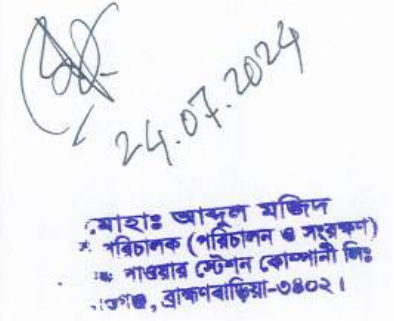 24.07.2024
মোহাঃ আব্দুল মজিদ
পরিচালক (পরিচালন ও সংরক্ষণ)
পাওয়ার স্টেশন কোম্পানী লিঃ
ব্রাহ্মণবাড়িয়া-৩৪০২।